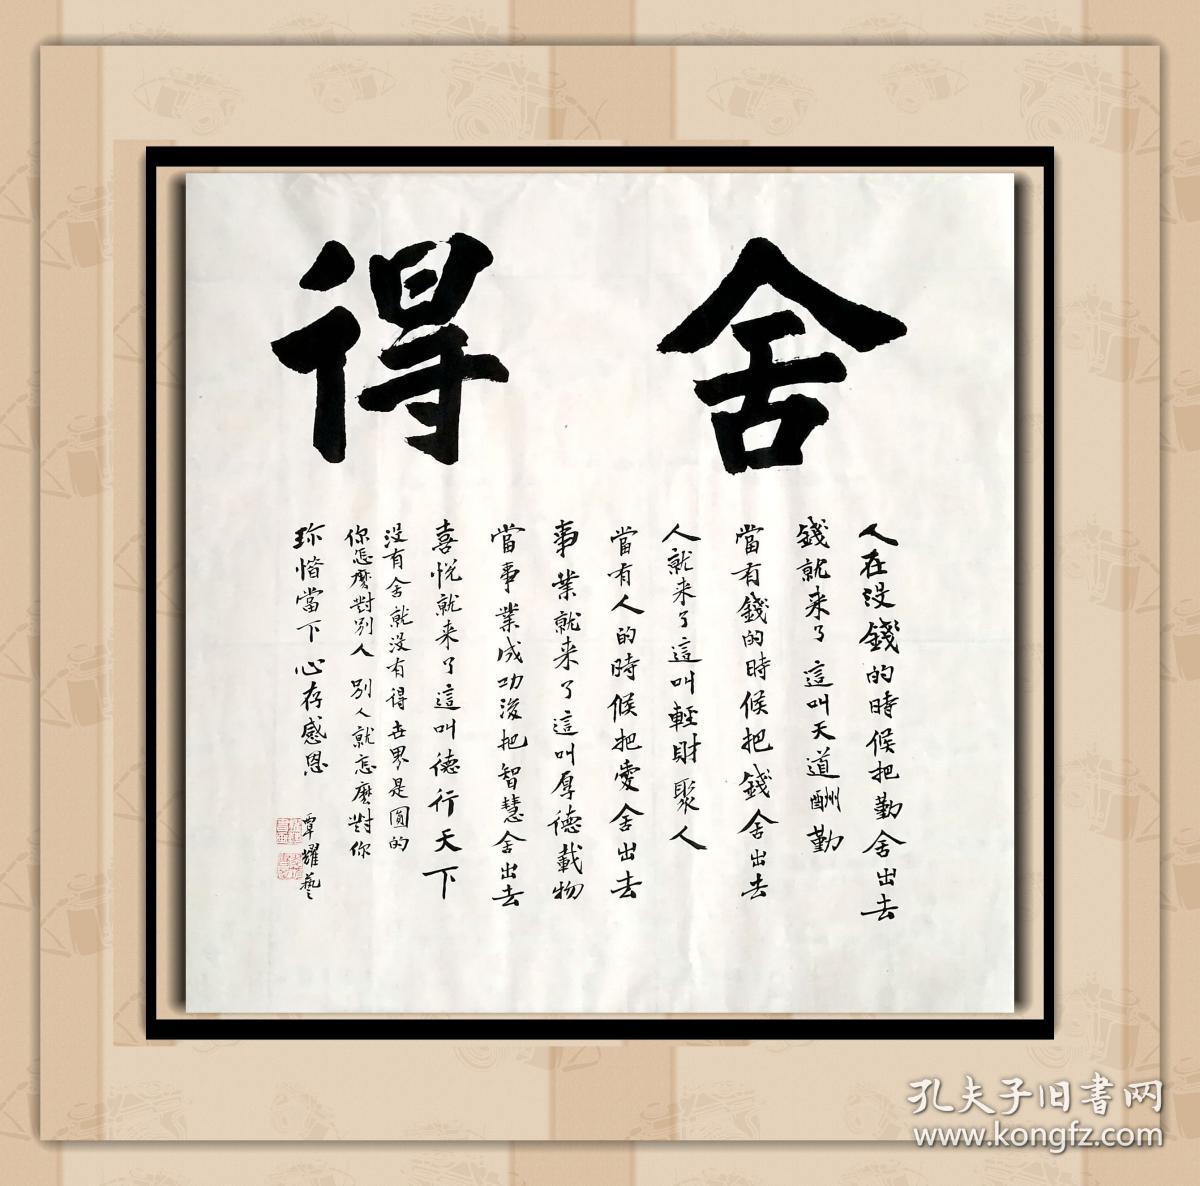 舍得
人在没錢的時候把勤舍出去
錢就来了這叫天道酬勤
當有錢的時候把錢舍出去
人就来了這叫輕財聚人
當有人的時候把愛舍出去
事業就来了這叫厚德載物
當事業成功後把智慧舍出去
喜悦就来了這叫德行天下
没有舍就没有得世界是圓的
你怎麼對别人别人就怎麼對你
珎惜當下心存感恩
覃耀藝
孔夫子旧书网
www.kongfz.com